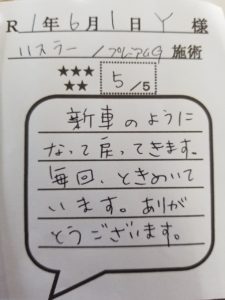 R 1年 6月 1日 Y 様
ハスラー / プレミアムG 施術
★★★
★★
5/5
新車のように
なって戻ってきます。
毎回、ときめいて
います。ありが
とうございます。